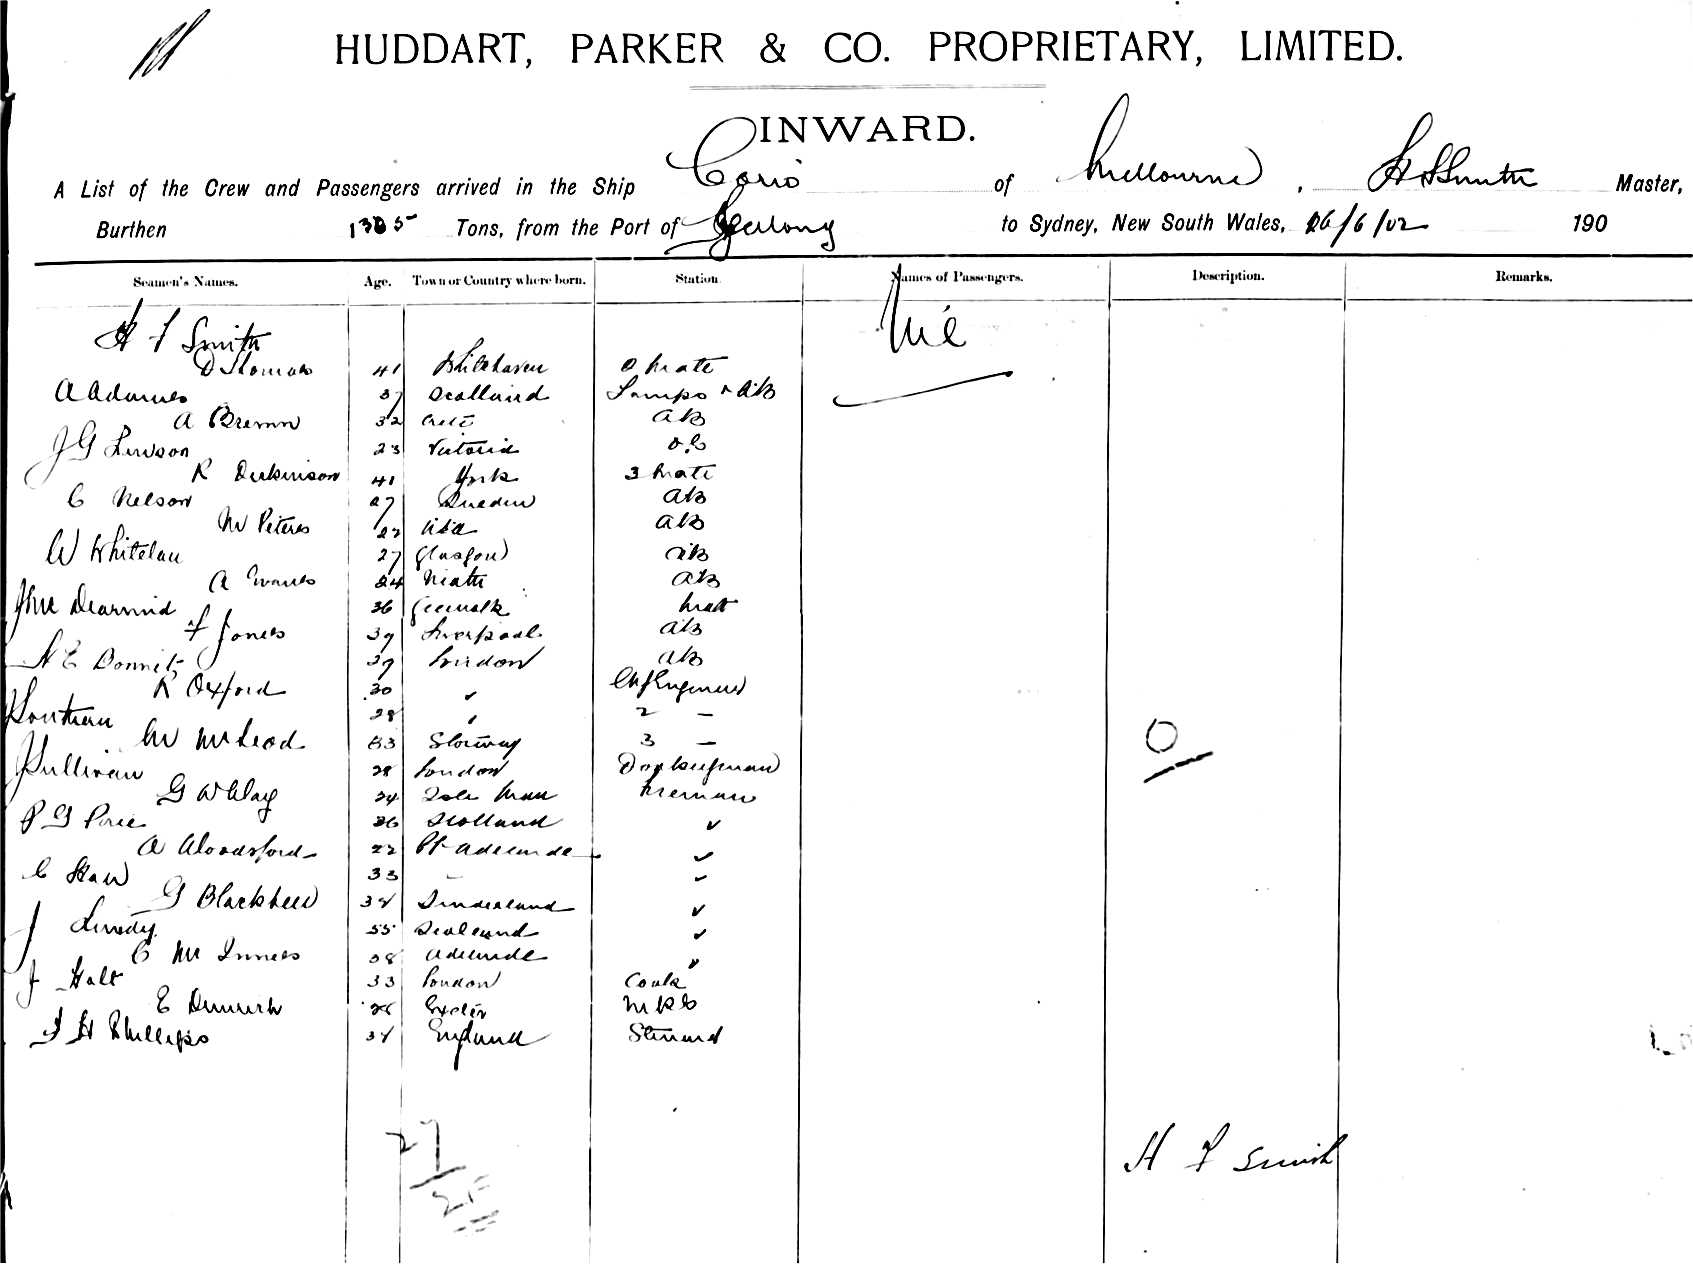 HUDDART, PARKER & CO. PROPRIETARY, LIMITED.
INWARD.
A List of the Crew and Passengers arrived in the Ship Corio of Melbourne, H F Smith Master,
Burthen 1305 Tons, from the Port of Geelong to Sydney, New South Wales, 26/6/02 190
Seamen's Names. Age. Town or Country where born. Station Names of Passengers. Description. Remarks.
H F Smith Nil
D Thomas 41 Whitehaven 2 Mate
A Adames 37 Scotland Lamps & AB
A Brown 32 AB
J G Lawson 23 Victoria O.S
R Dickinson 41 York 3 Mate
C Nelson 27 Sweden AB
W Peters 22 AB
W Whitelaw 27 Glasgow AB
A Evans 24 Neath AB
36 Mate
F Jones 39 Liverpool AB
H E 29 London AB
R Oxford 30 " Chf Engineer
28 " 2 —
W McLeod 33 3 —
Sullivan 28 London Donkeyman
G W Clay 24 Isle Man Fireman
P G 26 Scotland "
A Woodsford 22 Pt Adelaide "
C Shaw 33 — "
G 38 Sunderland "
J 55 "
C McInnes 38 Adelaide "
J Holt 33 London Cook
E 28 Exeter
H Phillips 38 England Steward
27
H F Smith